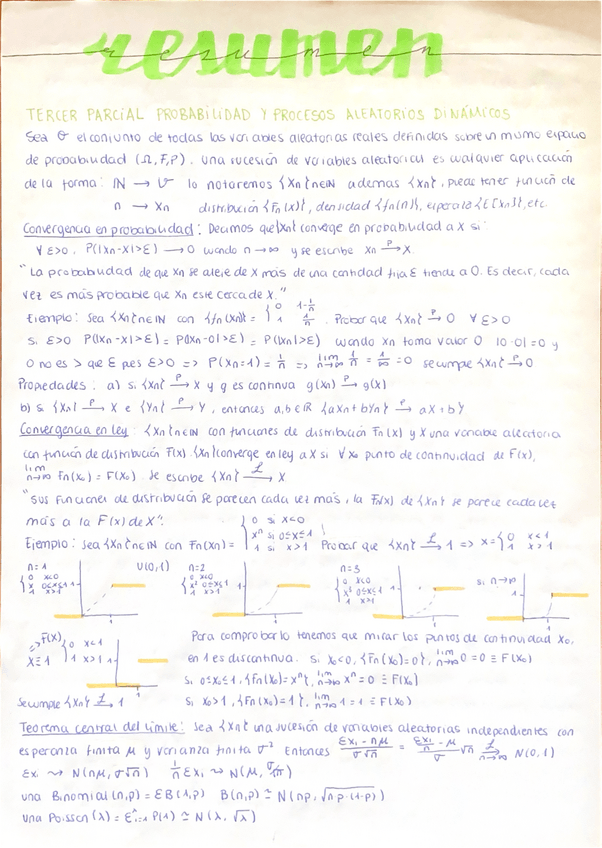 resumen
TERCER PARCIAL PROBABILIDAD Y PROCESOS ALEATORIOS DINÁMICOS
Sea V el conjunto de todas las variables aleatorias reales definidas sobre un mismo espacio
de probabilidad (Ω, F, P). Una sucesión de variables aleatorias es cualquier aplicación
de la forma: IN → V lo notaremos {Xn}n∈IN ademas {Xn}, puede tener función de
n → Xn distribución {Fn(x)}, densidad {fn(n)}, esperanza {E[Xn]}, etc.
Convergencia en probabilidad: Decimos que {Xn} converge en probabilidad a X si:
∀ε>0, P(|Xn-X|>ε) → 0 cuando n→∞ y se escribe Xn →P X.
"La probabilidad de que Xn se aleje de X más de una cantidad fija ε tiende a 0. Es decir, cada
vez es más probable que Xn este cerca de X."
Ejemplo: Sea {Xn}n∈IN con {fn(x)} = { 0 1-1/n 1 1/n . Probar que {Xn} →P 0 ∀ε>0
Si ε>0 P(|Xn-X|>ε) = P(|Xn-0|>ε) = P(|Xn|>ε) cuando Xn toma valor 0 |0-0|=0 y
0 no es > que ε pues ε>0 => P(Xn=1) = 1/n => lim n→∞ 1/n = 1/∞ = 0 se cumple {Xn} →P 0
Propiedades: a) si {Xn} →P X y g es continua g(Xn) →P g(x)
b) si {Xn} →P X e {Yn} →P Y, entonces a,b∈IR {aXn+bYn} →P aX+bY
Convergencia en ley: {Xn}n∈IN con funciones de distribución Fn(x) y X una variable aleatoria
con función de distribución F(x). {Xn} converge en ley a X si ∀x0 punto de continuidad de F(x),
lim n→∞ Fn(x0) = F(x0). Se escribe {Xn} →L X
"Sus funciones de distribución se parecen cada vez más, la Fn(x) de {Xn} se parece cada vez
más a la F(x) de X".
Ejemplo: Sea {Xn}n∈IN con Fn(xn) = { 0 si x<0 x^n si 0≤x≤1 1 si x>1 Probar que {Xn} →L 1 => X = { 0 x<1 1 x>1
n=1 { 0 x<0 x 0≤x≤1 1 x>1 U(0,1) 1 1
n=2 { 0 x<0 x² 0≤x≤1 1 x>1 1 1
n=3 { 0 x<0 x³ 0≤x≤1 1 x>1 1 1
si n→∞ 1 1
=> F(x) X≡1 { 0 x<1 1 x>1 1 1
Para comprobarlo tenemos que mirar los puntos de continuidad x0,
en 1 es discontinua. Si x0<0, {Fn(x0)=0}, lim n→∞ 0 = 0 ≡ F(x0)
Si 0≤x0≤1, {Fn(x0)=x^n}, lim n→∞ x^n = 0 ≡ F(x0)
Se cumple {Xn} →L 1 Si x0>1, {Fn(x0)=1}, lim n→∞ 1 = 1 ≡ F(x0)
Teorema central del límite: Sea {Xn} una sucesión de variables aleatorias independientes con
esperanza finita μ y varianza finita σ² Entonces (Σxi - nμ)/(σ√n) = (Σxi/n - μ)/σ √n →L n→∞ N(0,1)
Σxi ~> N(nμ, σ√n) 1/n Σxi ~> N(μ, σ/√n)
una Binomial(n,p) = ΣB(1,p) B(n,p) ≃ N(np, √np·(1-p))
una Poisson(λ) = Σ^λ i=1 P(1) ≃ N(λ, √λ)